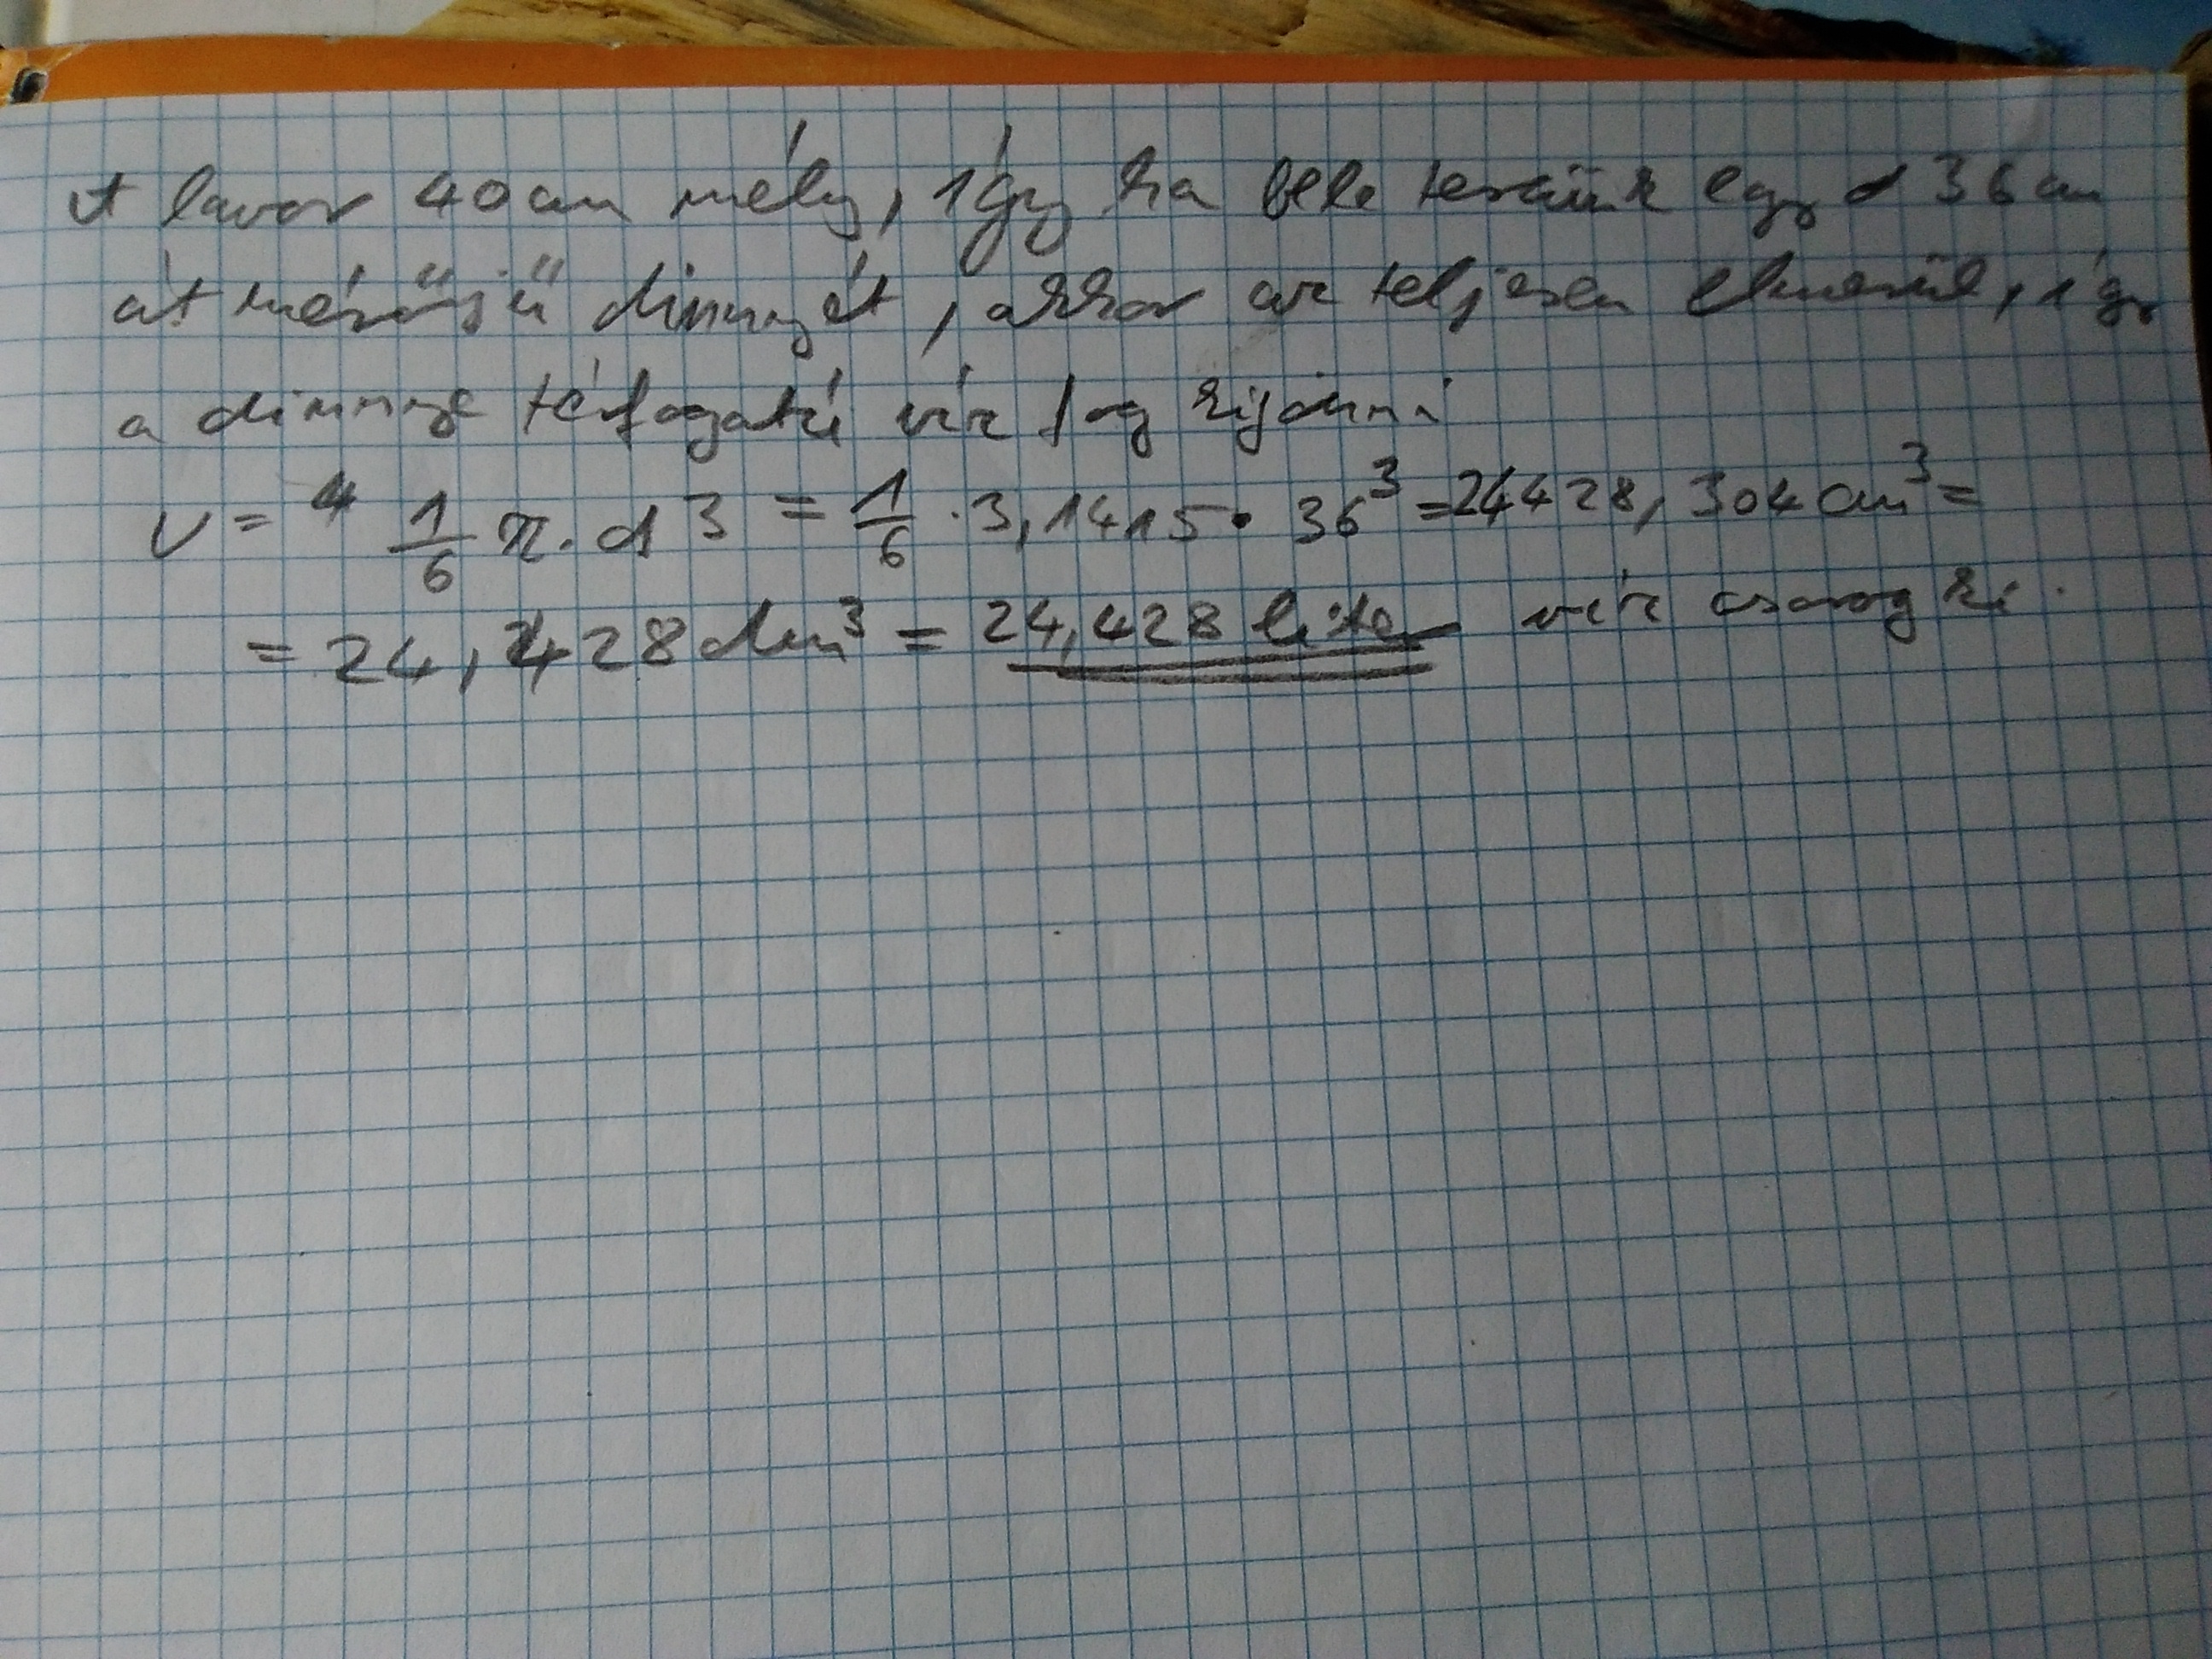 A lavor 40 cm mély, így ha bele teszünk egy d 36 cm
átmérőjű dinnyét, akkor az teljesen elmerül, így
a dinnye térfogatú víz fog kijönni
V = 1/6 π · d³ = 1/6 · 3,1415 · 36³ = 24428,304 cm³ =
= 24,428 dm³ = 24,428 liter víz csorog ki.